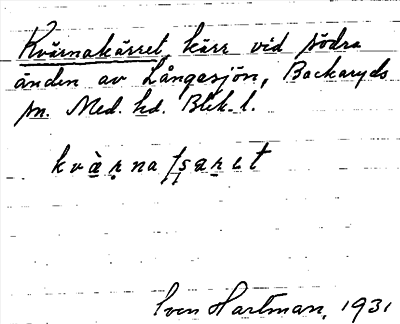 Kvärnakärret, kärr vid södra
änden av Långasjön, Backaryds
sn. Med. hd. Blek. l.
kvà̱ṛna/s̱aṟet
Sven Hartman, 1931